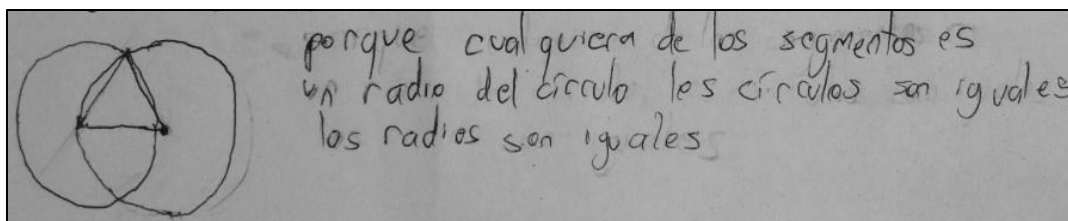 porque cualquiera de los segmentos es
un radio del círculo los círculos son iguales
los radios son iguales